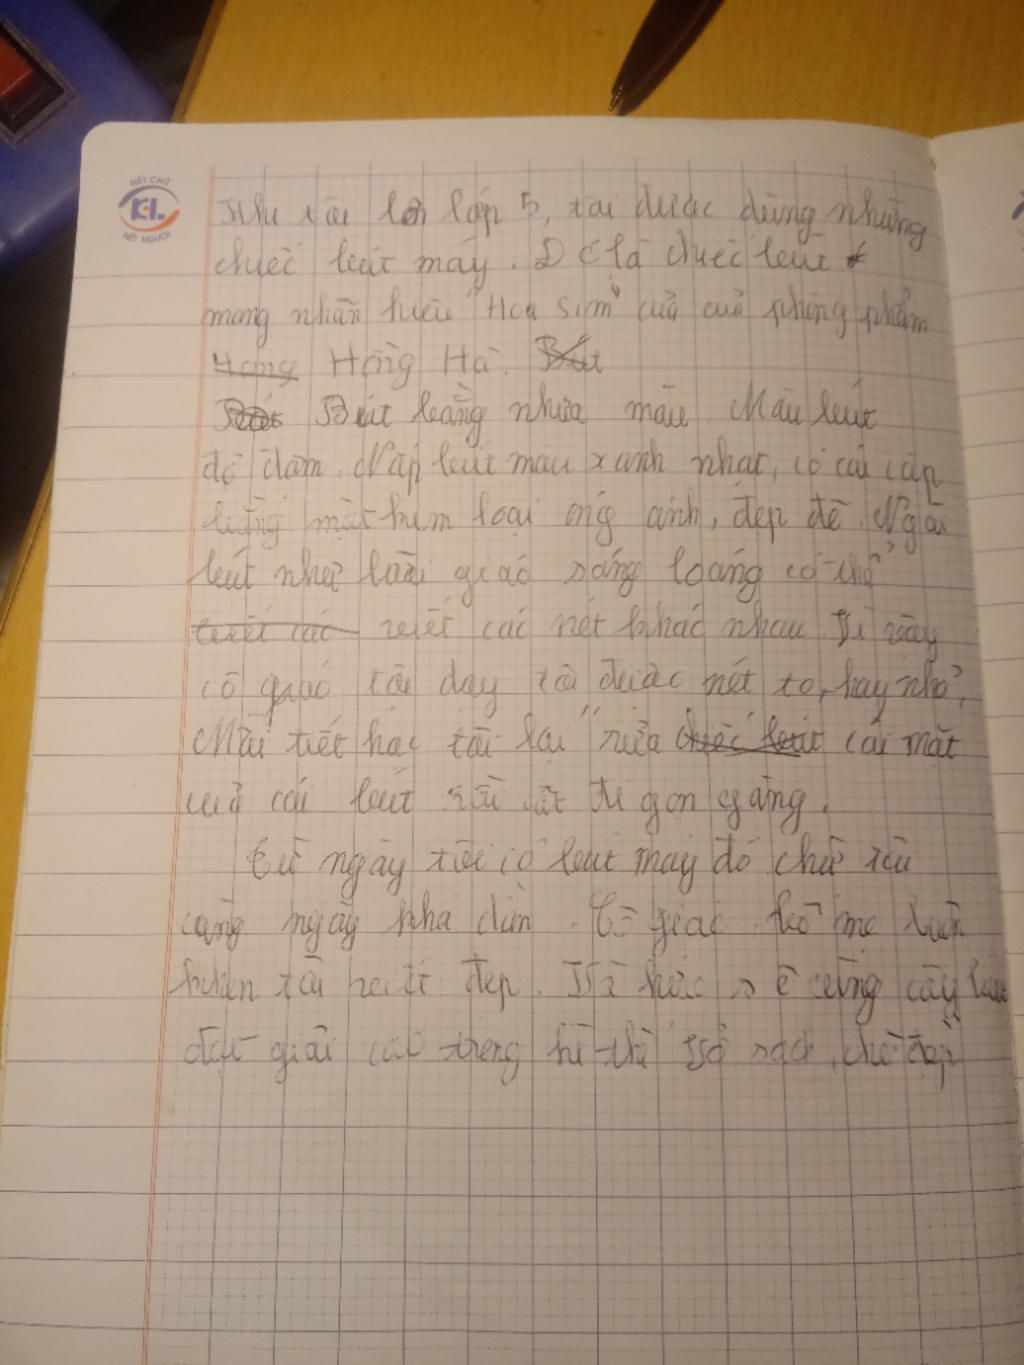 NÉT CHỮ
KL
NẾT NGƯỜI
Khi tôi lên lớp 5, tôi được dùng những
chiếc bút máy. Đó là chiếc bút
mang nhãn hiệu "Hoa Sim" của của phòng phẩm
Hong Hồng Hà. Bút
Bút bằng nhựa màu. Màu bút
đỏ đậm. Nắp bút màu xanh nhạt, có cái cặp
bằng mặt kim loại óng ánh, đẹp đẽ. Ngòi
bút như giáo sáng loáng có thể
viết các viết các nét khác nhau. Vì vậy
cô giáo tôi dạy tô được nét to, hay nhỏ.
Mỗi tiết học tôi lại "rửa chiếc bút cái mặt
cuả cái bút rồi cất đi gọn gàng.
Từ ngày tôi có bút máy đó chữ tôi
càng ngày khá dần. Cô giáo, bố mẹ luôn
khen tôi viết đẹp. cùng cây bút
đạt giải cao trong kì thi "Vở sạch, chữ đẹp"